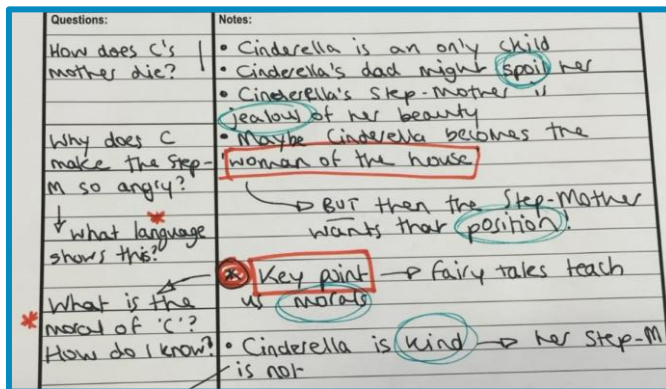 Questions:
How does C's
mother die?
Why does C
make the Step-
M so angry?
what language
shows this?
What is the
moral of 'C'?
How do I know?
Notes:
• Cinderella is an only child
• Cinderella's dad might spoil her
• Cinderella's Step-Mother is
jealous of her beauty
• Maybe Cinderella becomes the
woman of the house
BUT then the Step-Mother
wants that position!
Key point → Fairy tales teach
us morals
• Cinderella is kind → her Step-M
is not